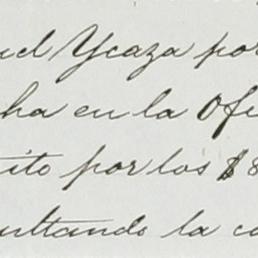 uel Ycaza por
ha en la Ofi
ito por los $8
ultando la co